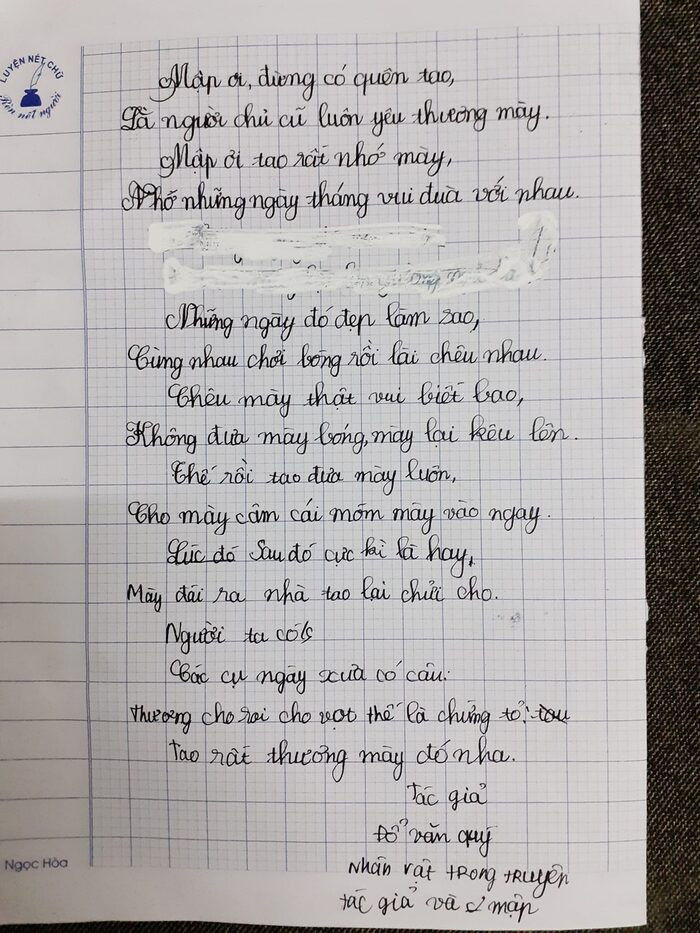 LUYỆN NÉT CHỮ
Rèn nết người
Mập ơi, đừng có quên tao,
Là người chủ cũ luôn yêu thương mày.
Mập ơi tao rất nhớ mày,
Nhớ những ngày tháng vui đùa với nhau.
Những ngày đó đẹp làm sao,
Cùng nhau chơi bóng rồi lài chêu nhau.
Chêu mày thật vui biết bao,
Không đưa mày bóng, mày lại kêu lên.
Thế rồi tao đưa mày luôn,
Cho mày câm cái mồm mày vào ngay.
Lúc đó Sau đó cực kì là hay,
Mày đái ra nhà tao lại chửi cho.
Người ta có
Các cụ ngày xưa có câu:
Thương cho roi cho vọt thế là chứng tỏ:
Tao rất thương mày đó nha.
Tác giả
Đỗ văn quý
Nhân vật trong truyện
tác giả và mập
Ngọc Hòa